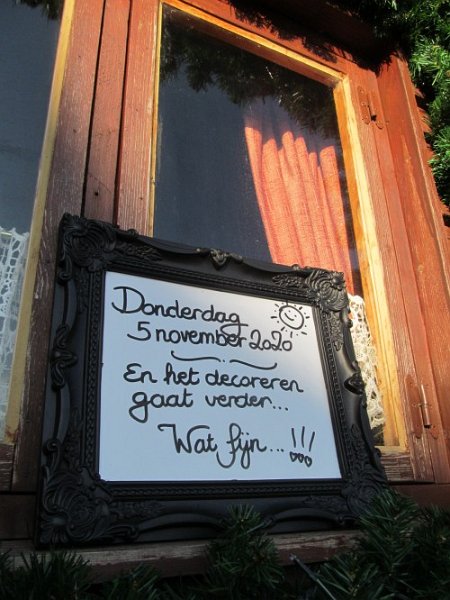 Donderdag
5 november 2020
En het decoreren
gaat verder...
Wat fijn...!!!